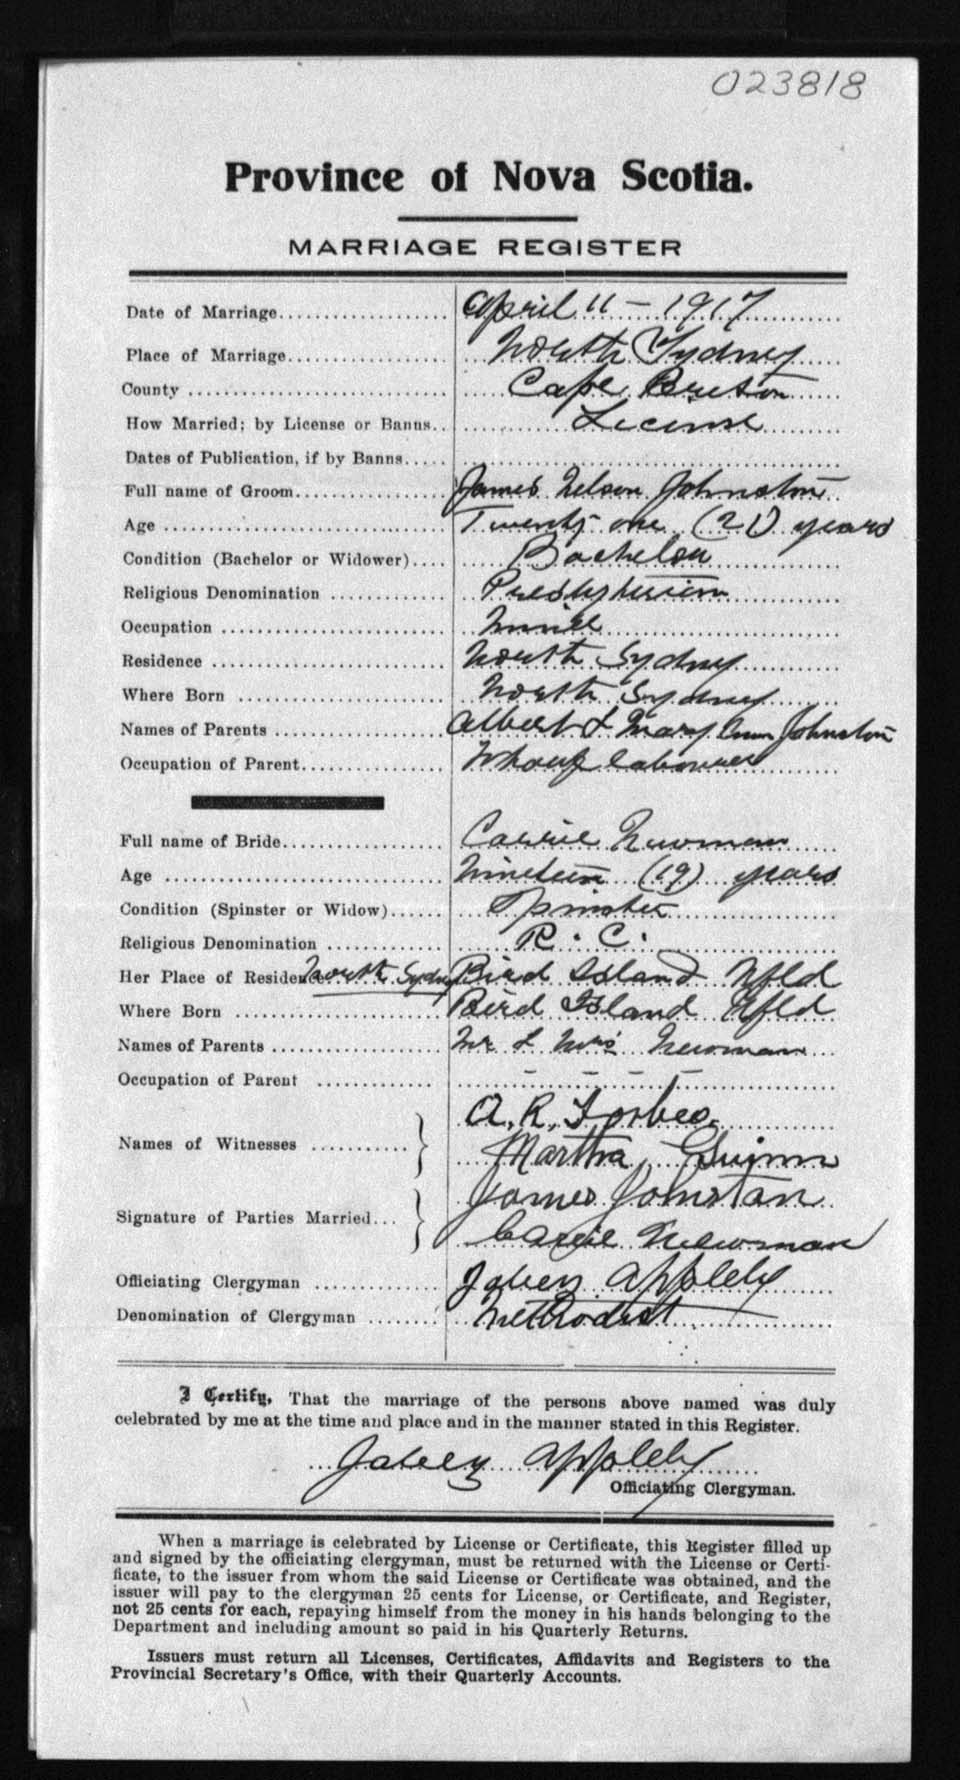 023818
Province of Nova Scotia.
MARRIAGE REGISTER
Date of Marriage April 11 - 1917
Place of Marriage North Sydney
County Cape Breton
How Married; by License or Banns License
Dates of Publication, if by Banns
Full name of Groom James Nelson Johnston
Age Twenty one (21) years
Condition (Bachelor or Widower) Bachelor
Religious Denomination Presbyterian
Occupation
Residence North Sydney
Where Born North Sydney
Names of Parents Albert & Mary Ann Johnston
Occupation of Parent Wharf labourer
Full name of Bride Carrie Newman
Age Nineteen (19) years
Condition (Spinster or Widow) Spinster
Religious Denomination R. C.
Her Place of Residence North Sydney Bird Island Nfld
Where Born Bird Island Nfld
Names of Parents Mr & Mrs Newman
Occupation of Parent - - - -
A. R. Forbes
Names of Witnesses
Martha Guinn
James Johnstan
Signature of Parties Married
Carrie Newman
Officiating Clergyman Jabez Appleby
Denomination of Clergyman Methodist
I Certify, That the marriage of the persons above named was duly
celebrated by me at the time and place and in the manner stated in this Register.
Jabez Appleby
Officiating Clergyman.
When a marriage is celebrated by License or Certificate, this Register filled up
and signed by the officiating clergyman, must be returned with the License or Certi-
ficate, to the issuer from whom the said License or Certificate was obtained, and the
issuer will pay to the clergyman 25 cents for License, or Certificate, and Register,
not 25 cents for each, repaying himself from the money in his hands belonging to the
Department and including amount so paid in his Quarterly Returns.
Issuers must return all Licenses, Certificates, Affidavits and Registers to the
Provincial Secretary's Office, with their Quarterly Accounts.